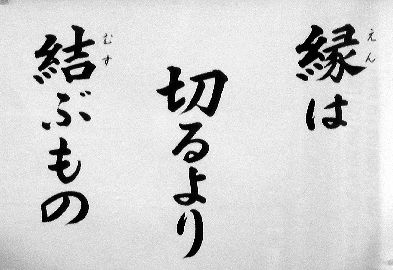 縁は
えん
切るより
結ぶもの
むす